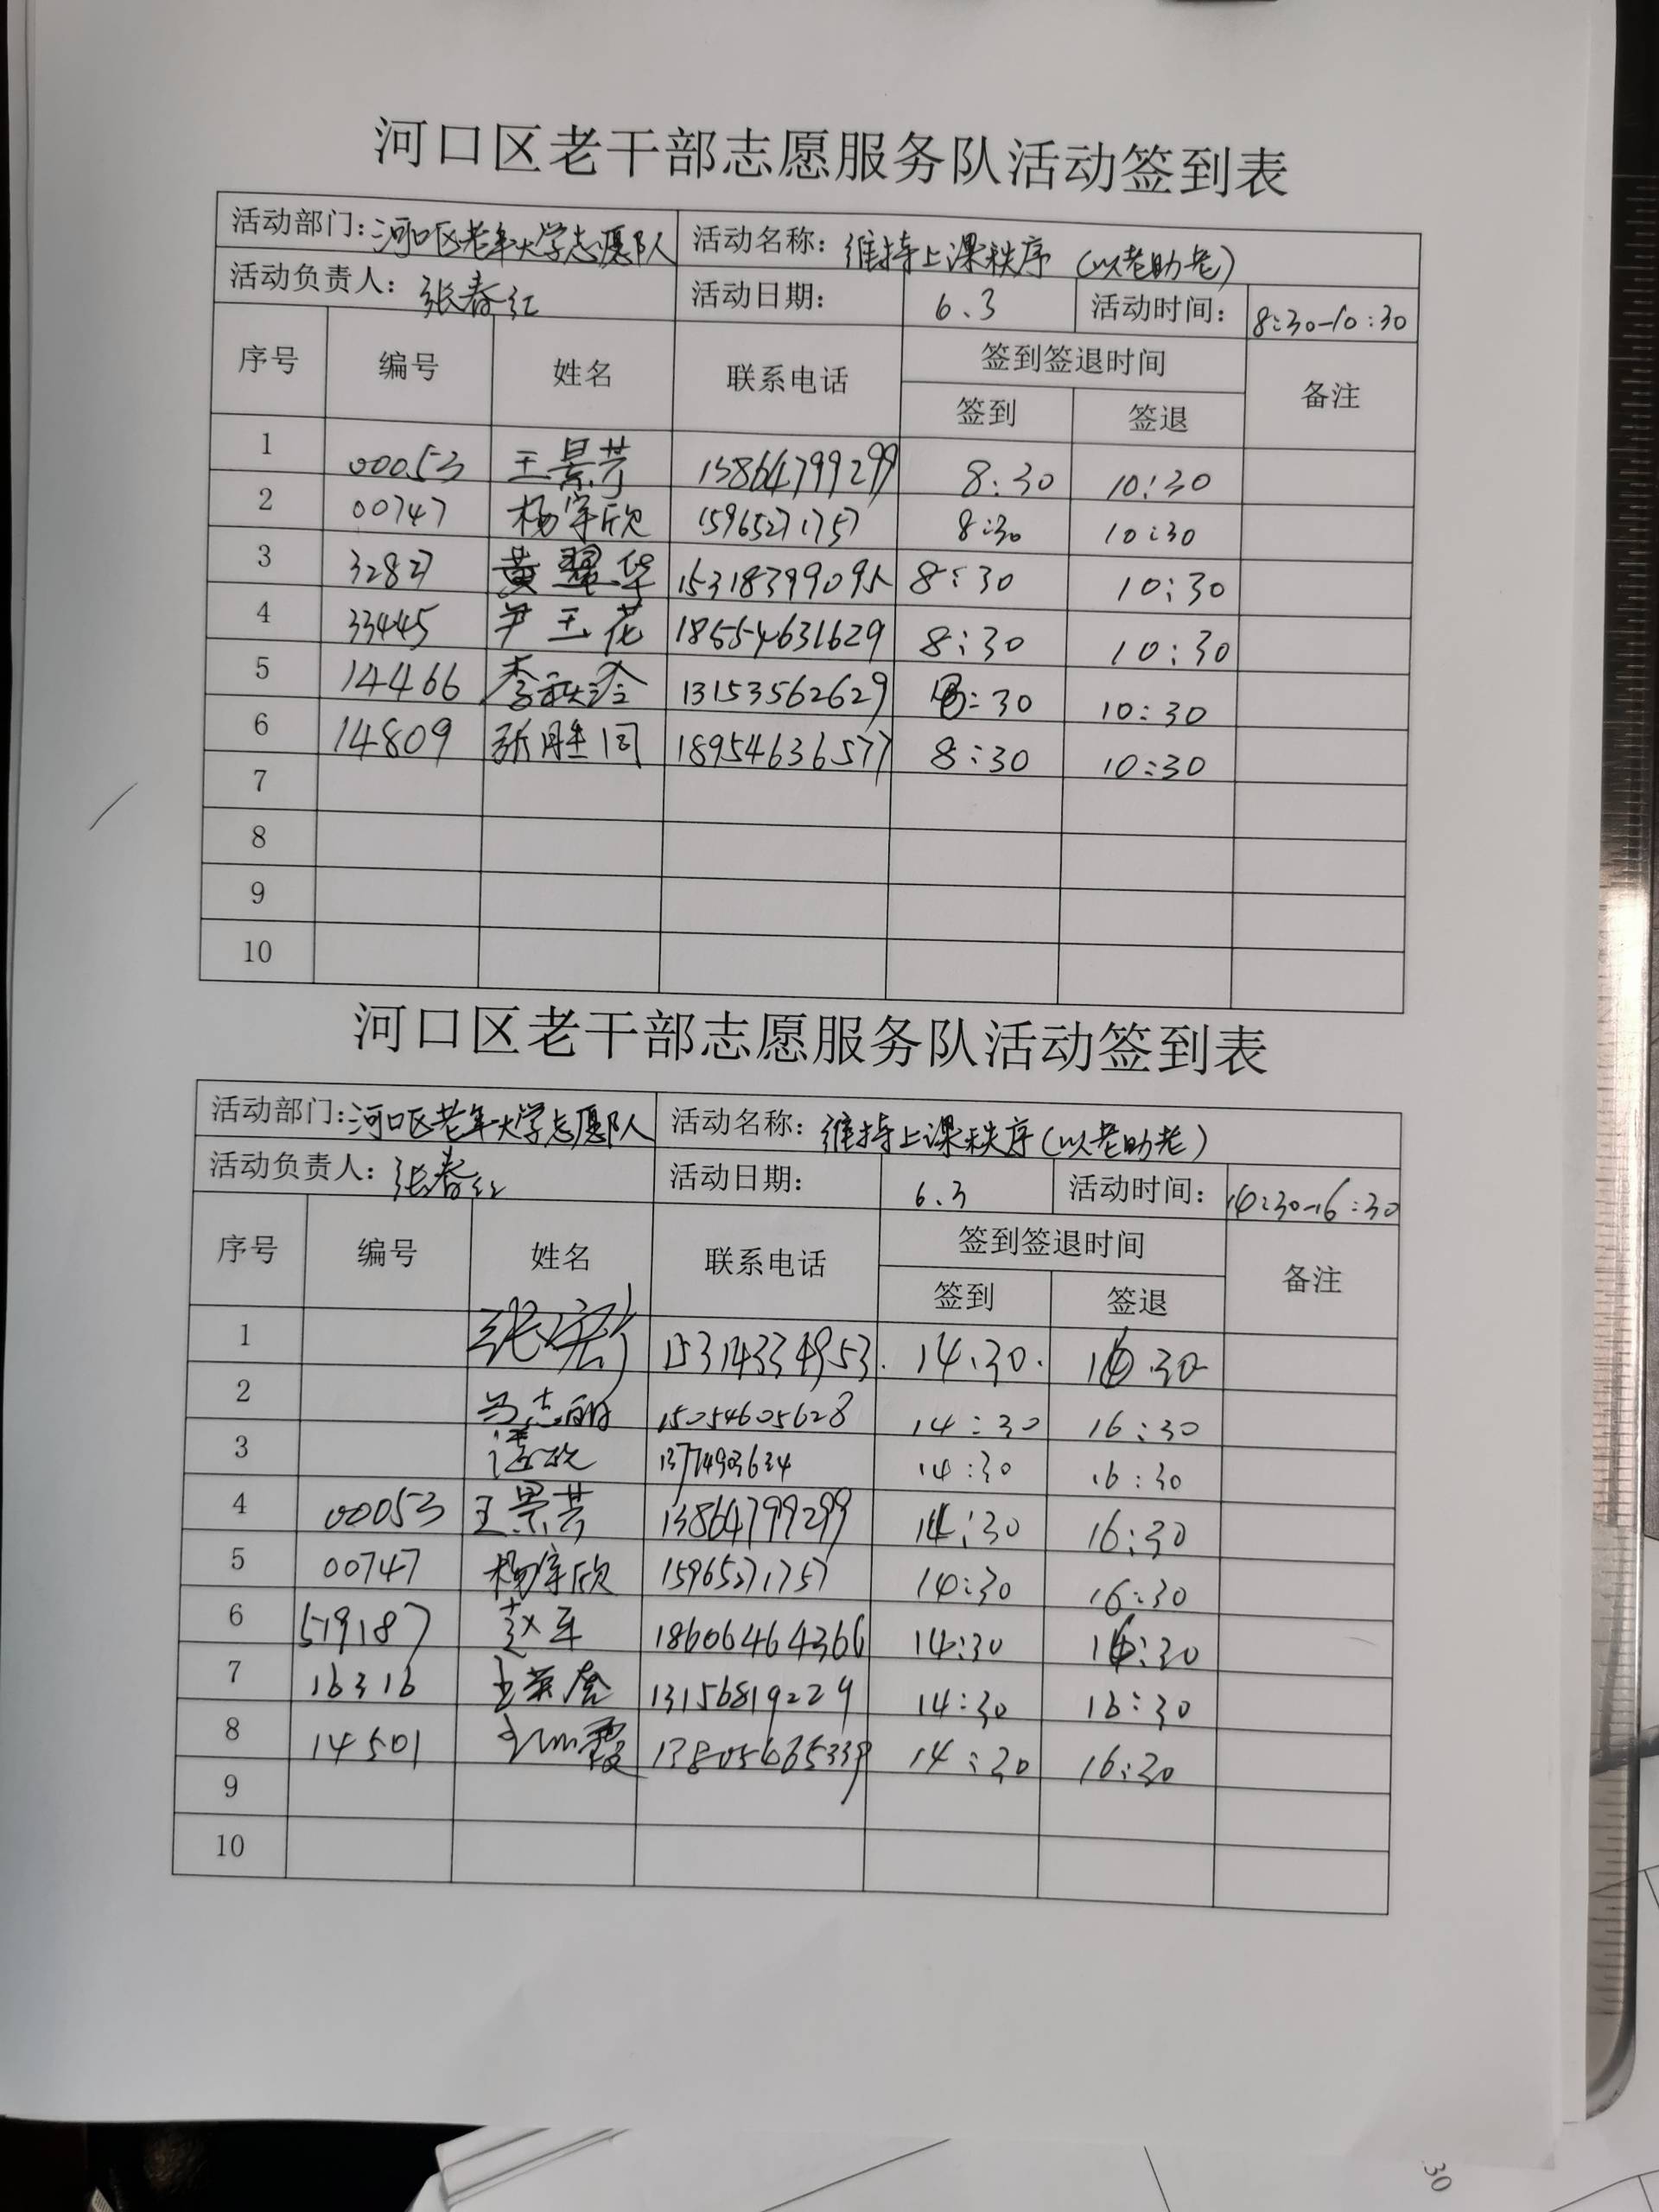 河口区老干部志愿服务队活动签到表
活动部门:河口区老年大学志愿队 活动名称:维持上课秩序(以老助老)
活动负责人:张春红 活动日期: 6.3 活动时间: 8:30-10:30
序号 编号 姓名 联系电话 签到签退时间 备注
签到 签退
1 00053 王景芳 13864799299 8:30 10:30
2 00747 杨宇欣 15965271757 8:30 10:30
3 32827 黄翠华 15318399095 8:30 10:30
4 33445 尹玉花 18554631629 8:30 10:30
5 14466 李 13153562629 8:30 10:30
6 14809 张胜同 18954636577 8:30 10:30
7
8
9
10
河口区老干部志愿服务队活动签到表
活动部门:河口区老年大学志愿队 活动名称:维持上课秩序(以老助老)
活动负责人:张春红 活动日期: 6.3 活动时间: 14:30-16:30
序号 编号 姓名 联系电话 签到签退时间 备注
签到 签退
1 15314334953. 14.30. 16.30
2 15054605628 14:30 16:30
3 14:30 16:30
4 00053 王景芳 13864799299 14:30 16:30
5 00747 杨宇欣 15965271757 14:30 16:30
6 519187 赵军 18606464366 14:30 16:30
7 16316 13156819229 14:30 16:30
8 14501 14:30 16:30
9
10
30